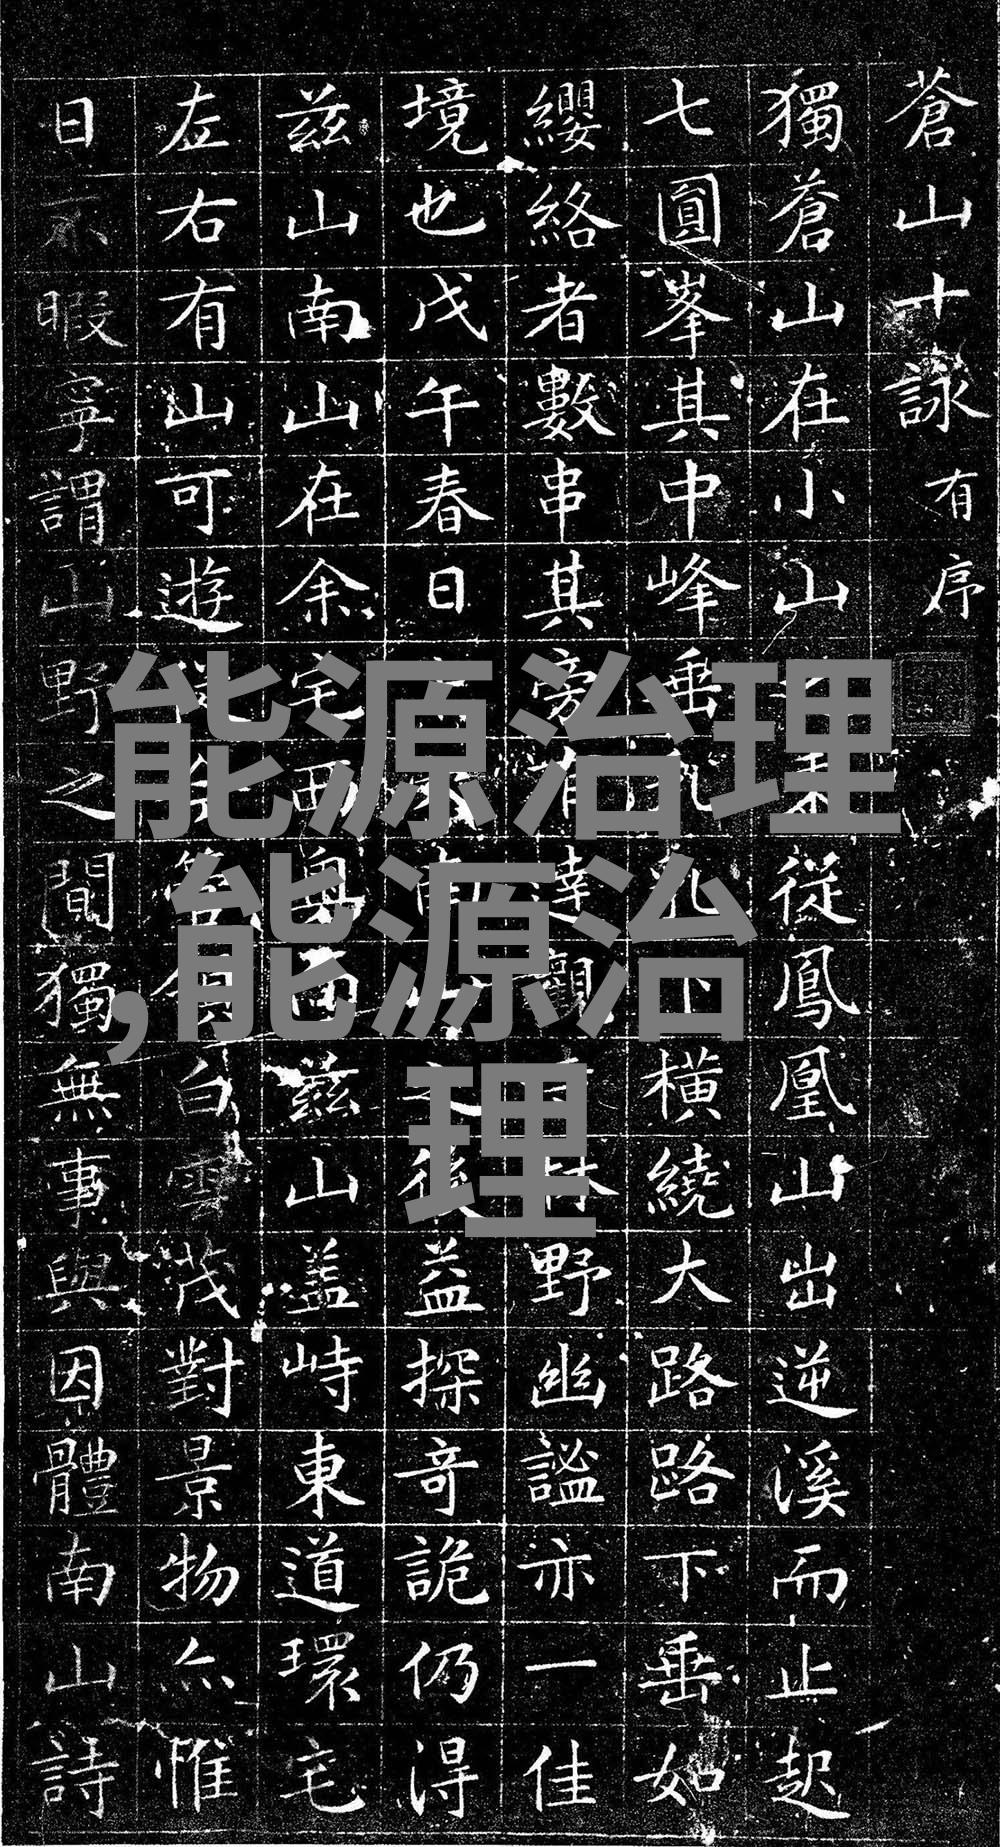 蒼山十詠有序
獨蒼山在小山從鳳凰山出逆溪而止起
七圓峯其中峰垂乳乳下橫繞大路路下垂如
纓絡者數串其旁有達觀林野幽謐亦一佳
境也戊午春日南之後益探奇詭仍得
茲山南山在余宅西奧而茲山盖峙東道環宅
左右有山可遊管白雲茂對景物亦惟
日不暇寧謂山野之間獨無事與因體南山詩
能源治理
,能源治
理